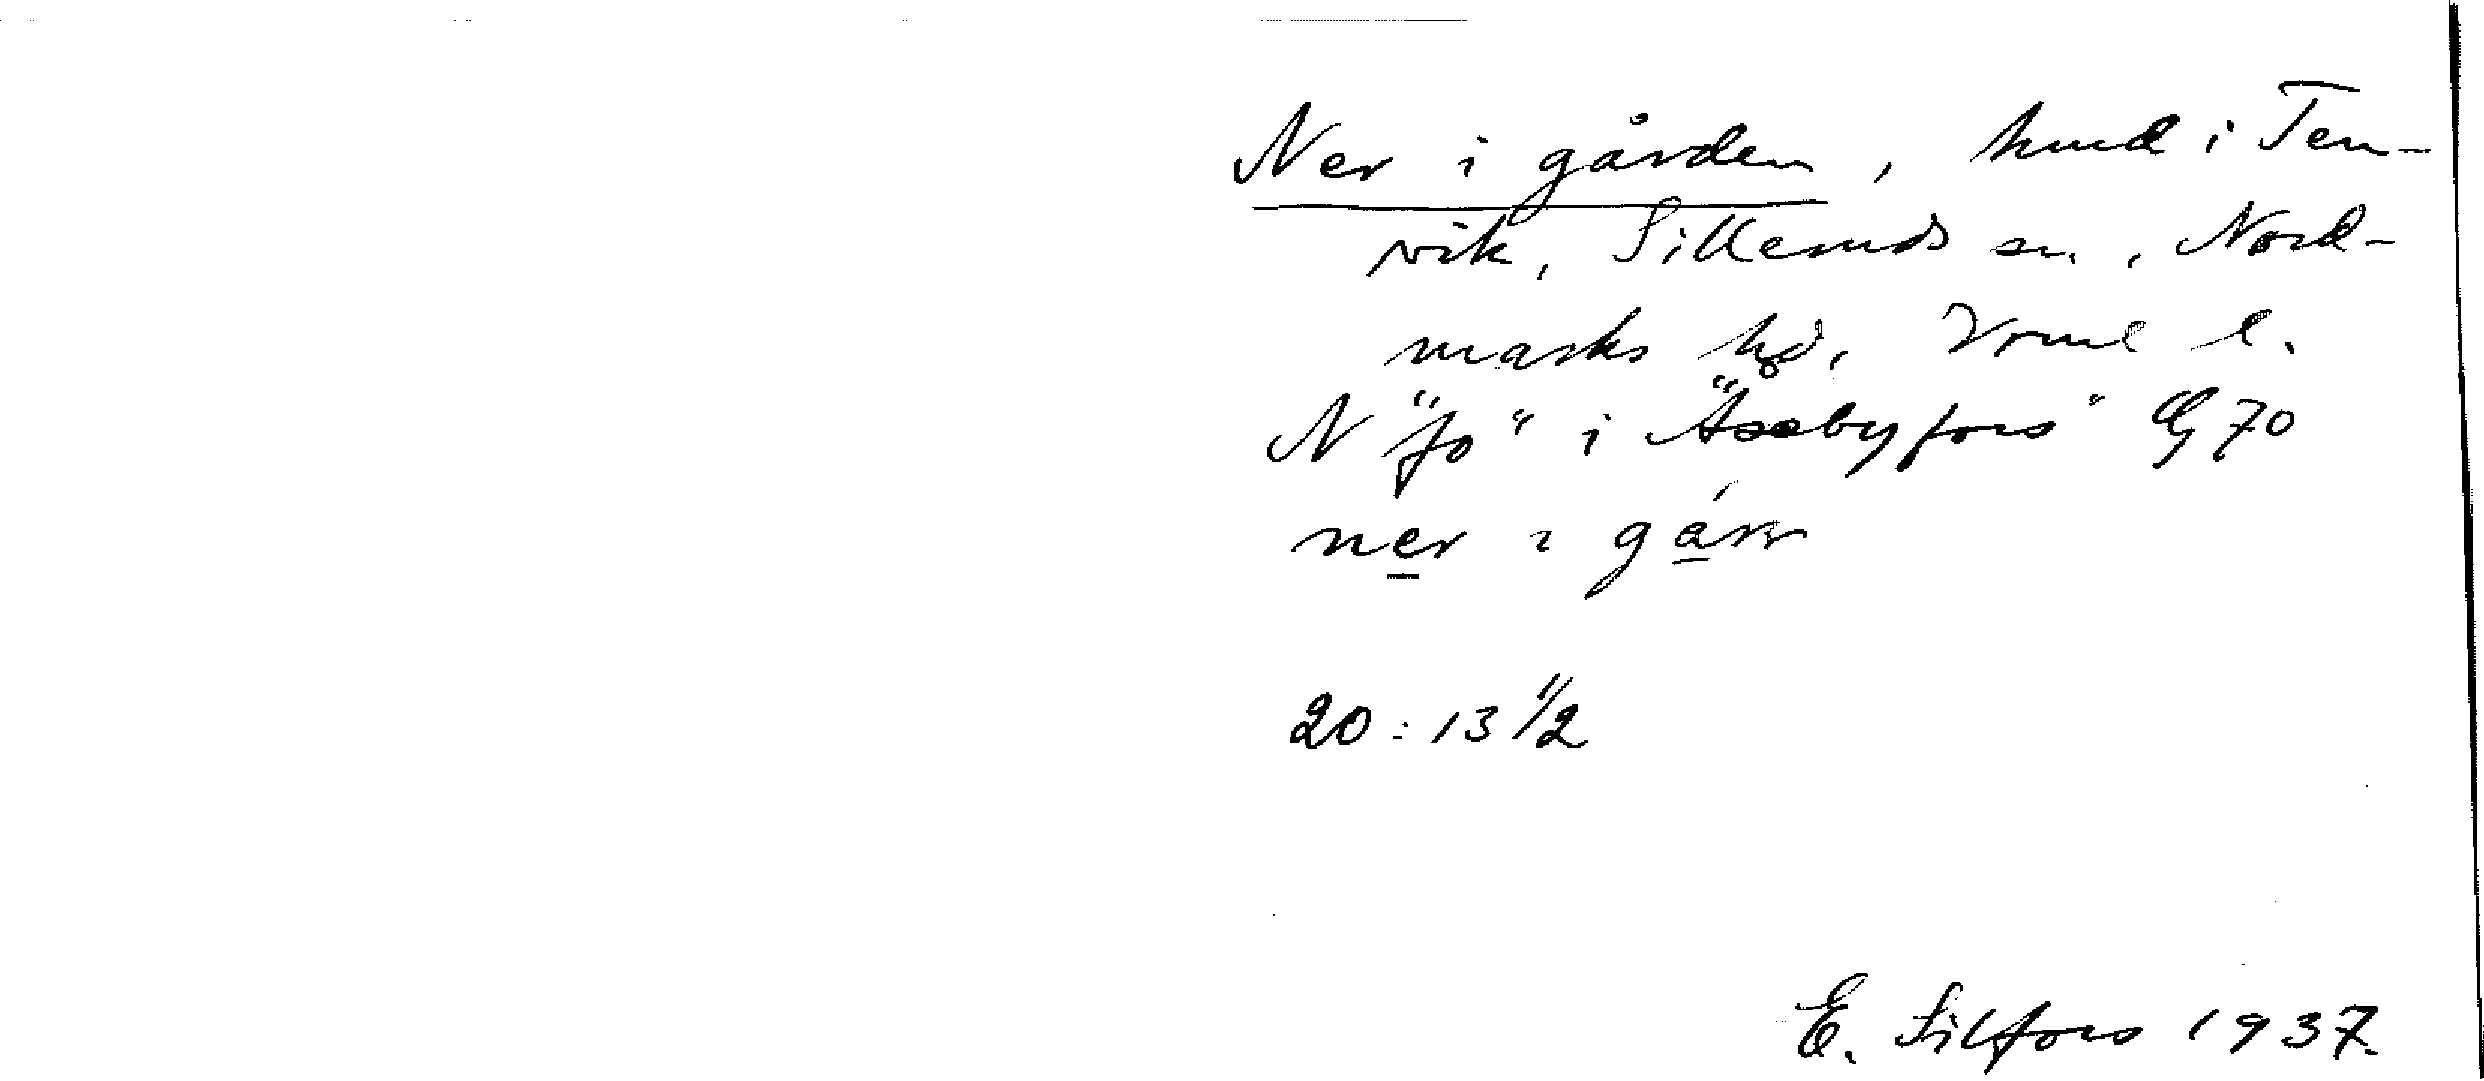 Ner i gården, hmd i Ten-
vik, Silleruds sn., Nord-
marks hd, Vrml l.
N "fo" i "Ässebyfors" Eg 70
ner i gárn
20:13 1/2
E. Silfors 1937.